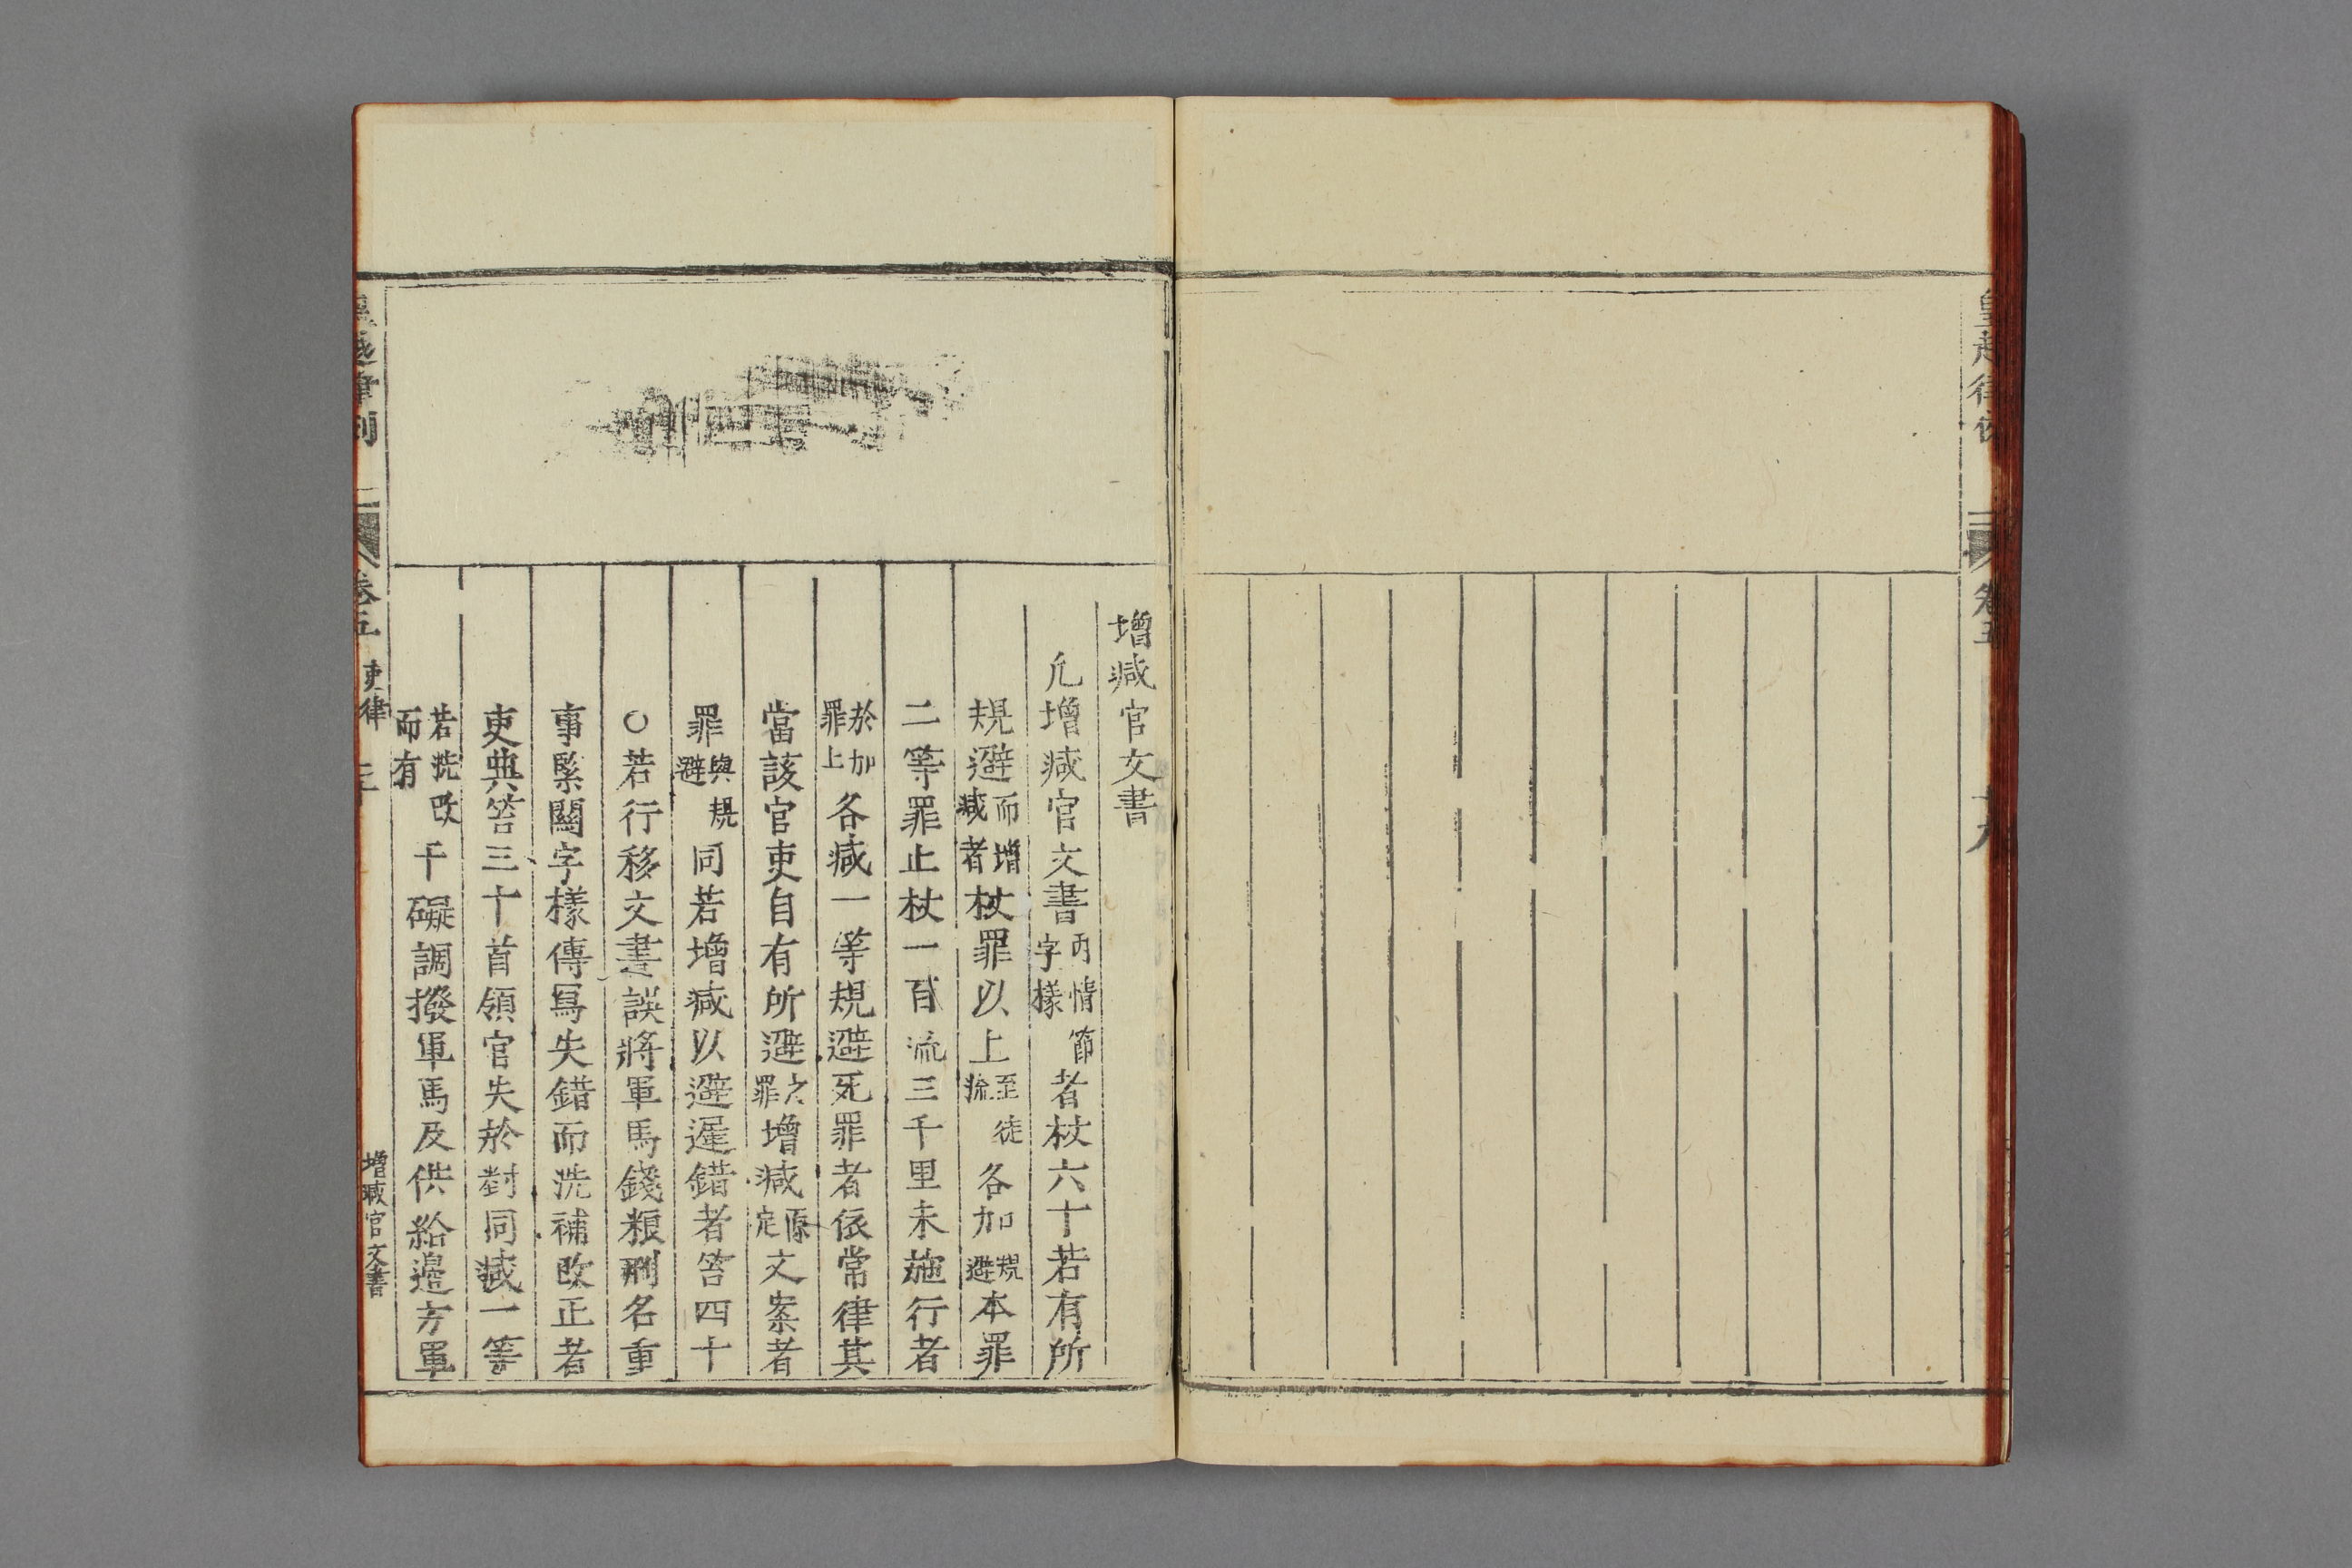 皇越律例
卷五
增减官文書
凡增减官文書内情節字樣者杖六十若有所
規避而增减者杖罪以上至徒流各加規避本罪
二等罪止杖一百流三千里未施行者
於加罪上各减一等規避死罪者依常律其
當該官吏自有所避之罪增减原定文案者
罪與規避同若增减以避遲錯者笞四十
○若行移文書誤將軍馬錢粮刑名重
事緊關字樣傳寫失錯而洗補改正者
吏典笞三十首領官失於對同减一等
若洗改而有干礙調撥軍馬及供給邉方軍
皇越律例
卷五
吏律
增减官文書